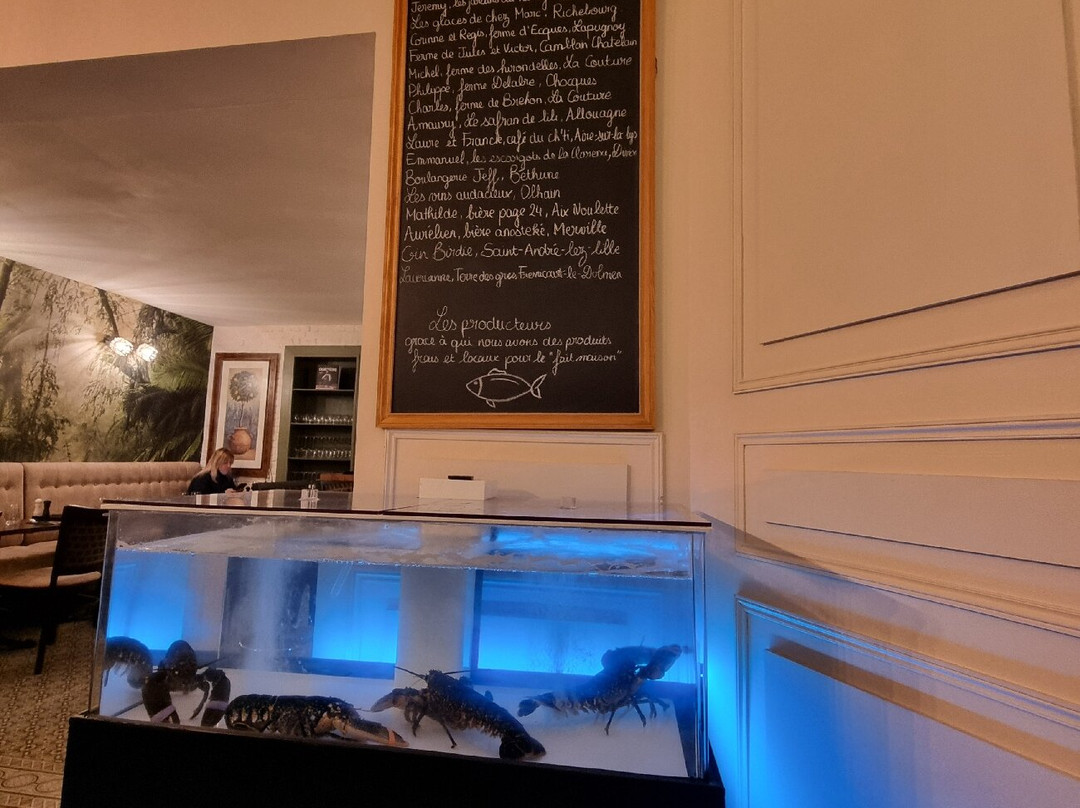 Jeremy, les jardins
Les glaces de chez Marc, Richebourg
Corinne et Regis, ferme d'Ecques, Lapugnoy
Ferme de Jules et Victor, Camblain Chatelain
Michel, ferme des hirondelles, La Couture
Philippe, ferme Delabre, Chocques
Charles, ferme de Brehon, La Couture
Amaury, Le safran de lili, Allouagne
Laure et Franck, café du ch'ti, Aire-sur-la lys
Emmanuel, les escargots de la
Boulangerie Jeff, Béthune
Les vins audacieux, Olhain
Mathilde, bière page 24, Aix Noulette
Aurélien, bière anosteké, Merville
Gin Birdie, Saint-André-lez-lille
Torre des gres, Fresnicourt-le-Dolmen
Les producteurs
grace à qui nous avons des produits
frais et locaux pour le "fait maison"